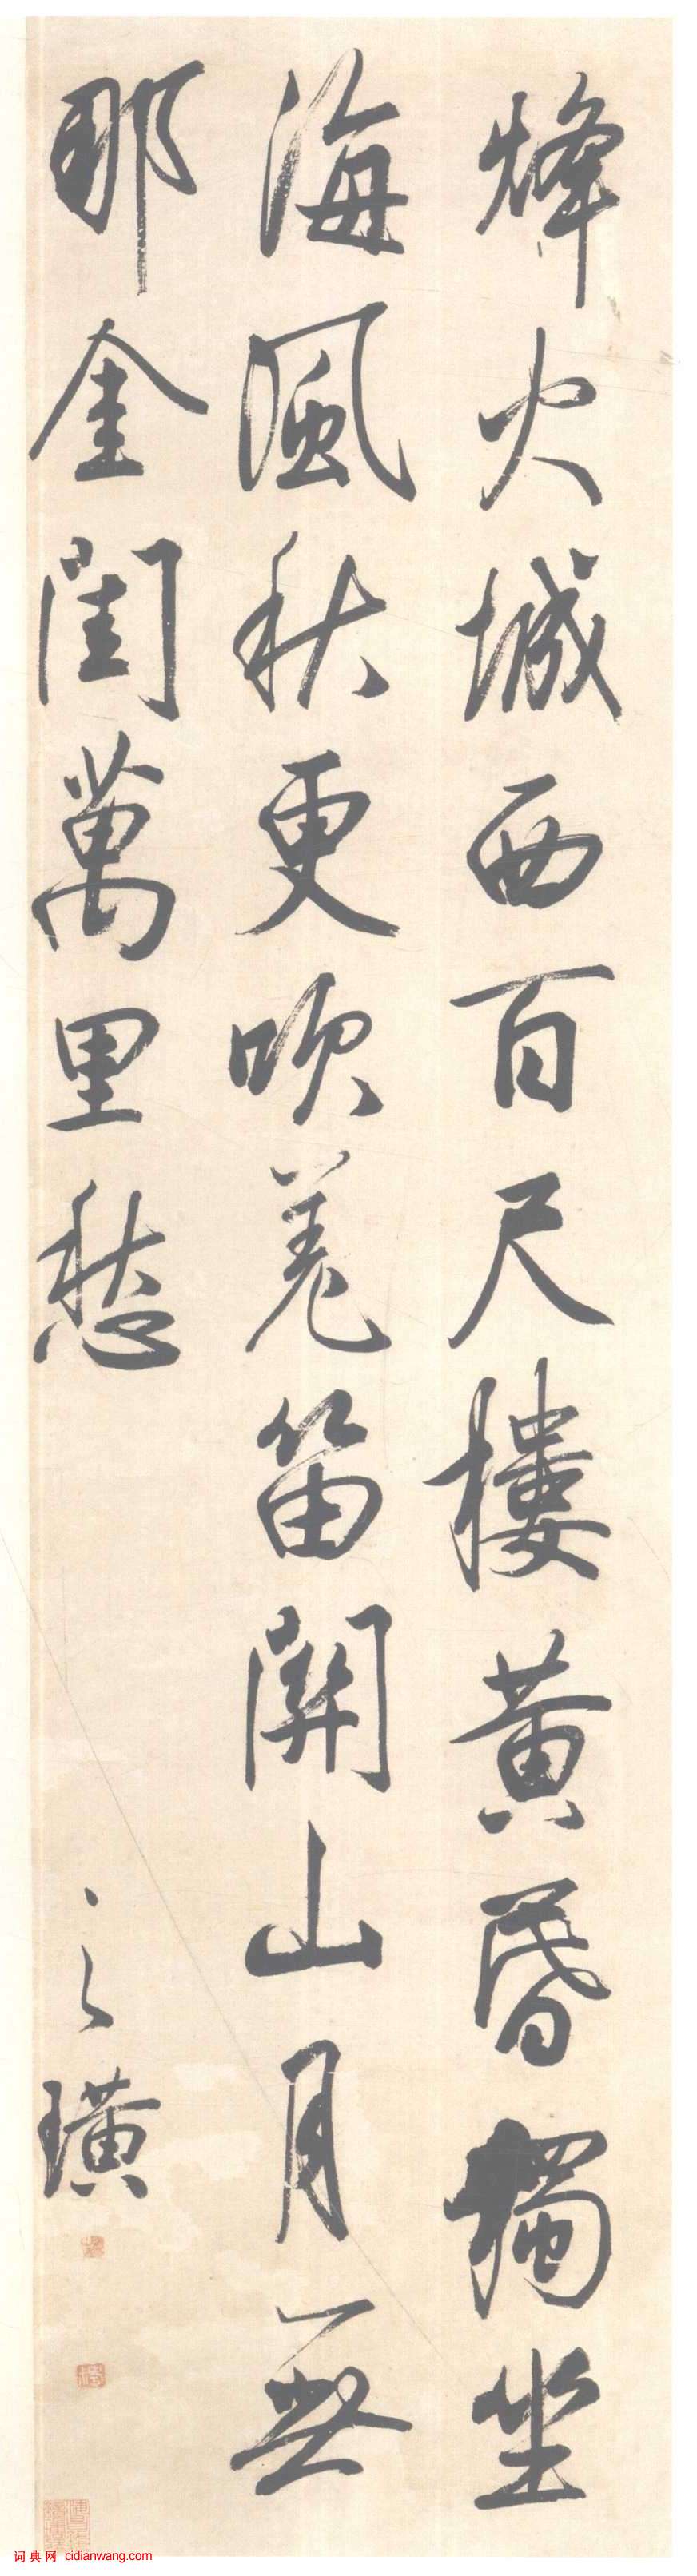 烽火城西百尺樓黃昏獨坐
海風秋更吹羌笛關山月無
那金閨萬里愁
之璜
词典网 cidianwang.com